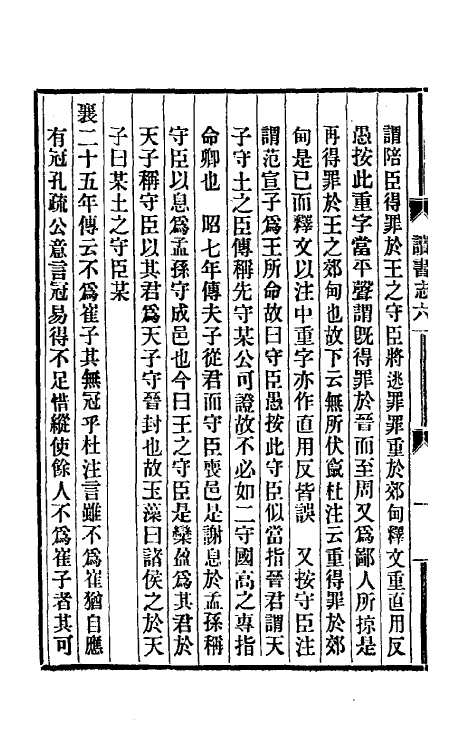 謂陪臣得罪於王之守臣將逃罪罪重於郊甸釋文重直用反
愚按此重字當平聲謂既得罪於晉而至周又爲鄙人所掠是
再得罪於王之郊甸也故下云無所伏竄杜注云重得罪於郊
甸是已而釋文以注中重字亦作直用反皆誤　又按守臣注
謂范宣子爲王所命故曰守臣愚按此守臣似當指晉君謂天
子守土之臣傳稱先守某公可證故不必如二守國高之專指
命卿也　昭七年傳夫子從君而守臣喪邑是謝息於孟孫稱
守臣以息爲孟孫守成邑也今曰王之守臣是欒盈爲其君於
天子稱守臣以其君爲天子守晉封也故玉藻曰諸侯之於天
子曰某土之守臣某
襄二十五年傳云不爲崔子其無冠乎杜注言雖不爲崔猶自應
有冠孔疏公意言冠易得不足惜縱使餘人不爲崔子者其可
讀書志六
一